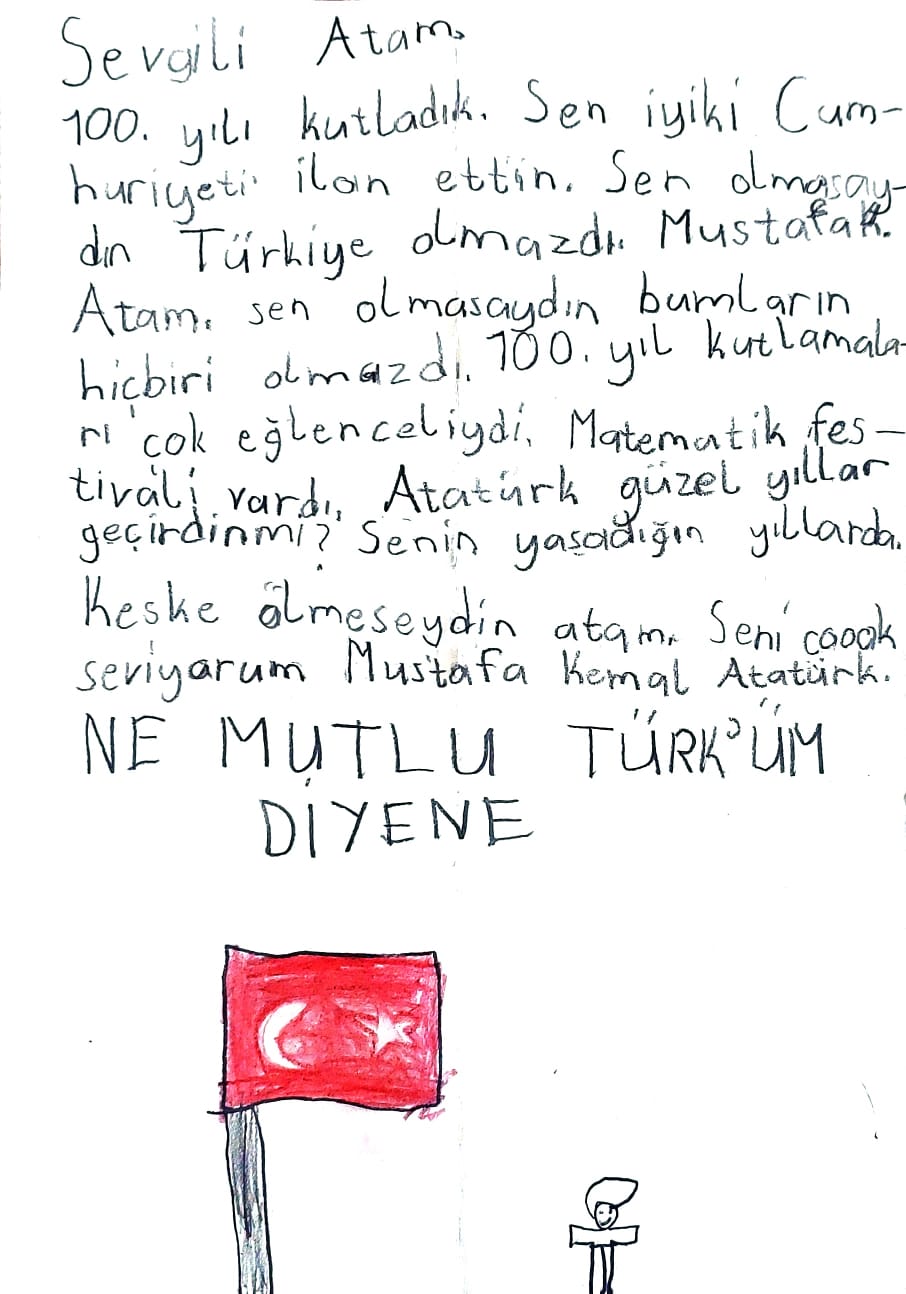 Sevgili Atam,
100. yılı kutladık. Sen iyiki Cum-
huriyeti ilan ettin. Sen olmasay-
dın Türkiye olmazdı. Mustafa K.
Atam. sen olmasaydın bumların
hiçbiri olmazdı. 100. yıl kutlamala-
rı çok eğlenceliydi. Matematik fes-
tivali vardı. Atatürk güzel yıllar
geçirdinmi? Senin yaşadığın yıllarda.
Keşke ölmeseydin atam. Seni çoook
seviyarum Mustafa Kemal Atatürk.
NE MUTLU TÜRK'ÜM
DİYENE